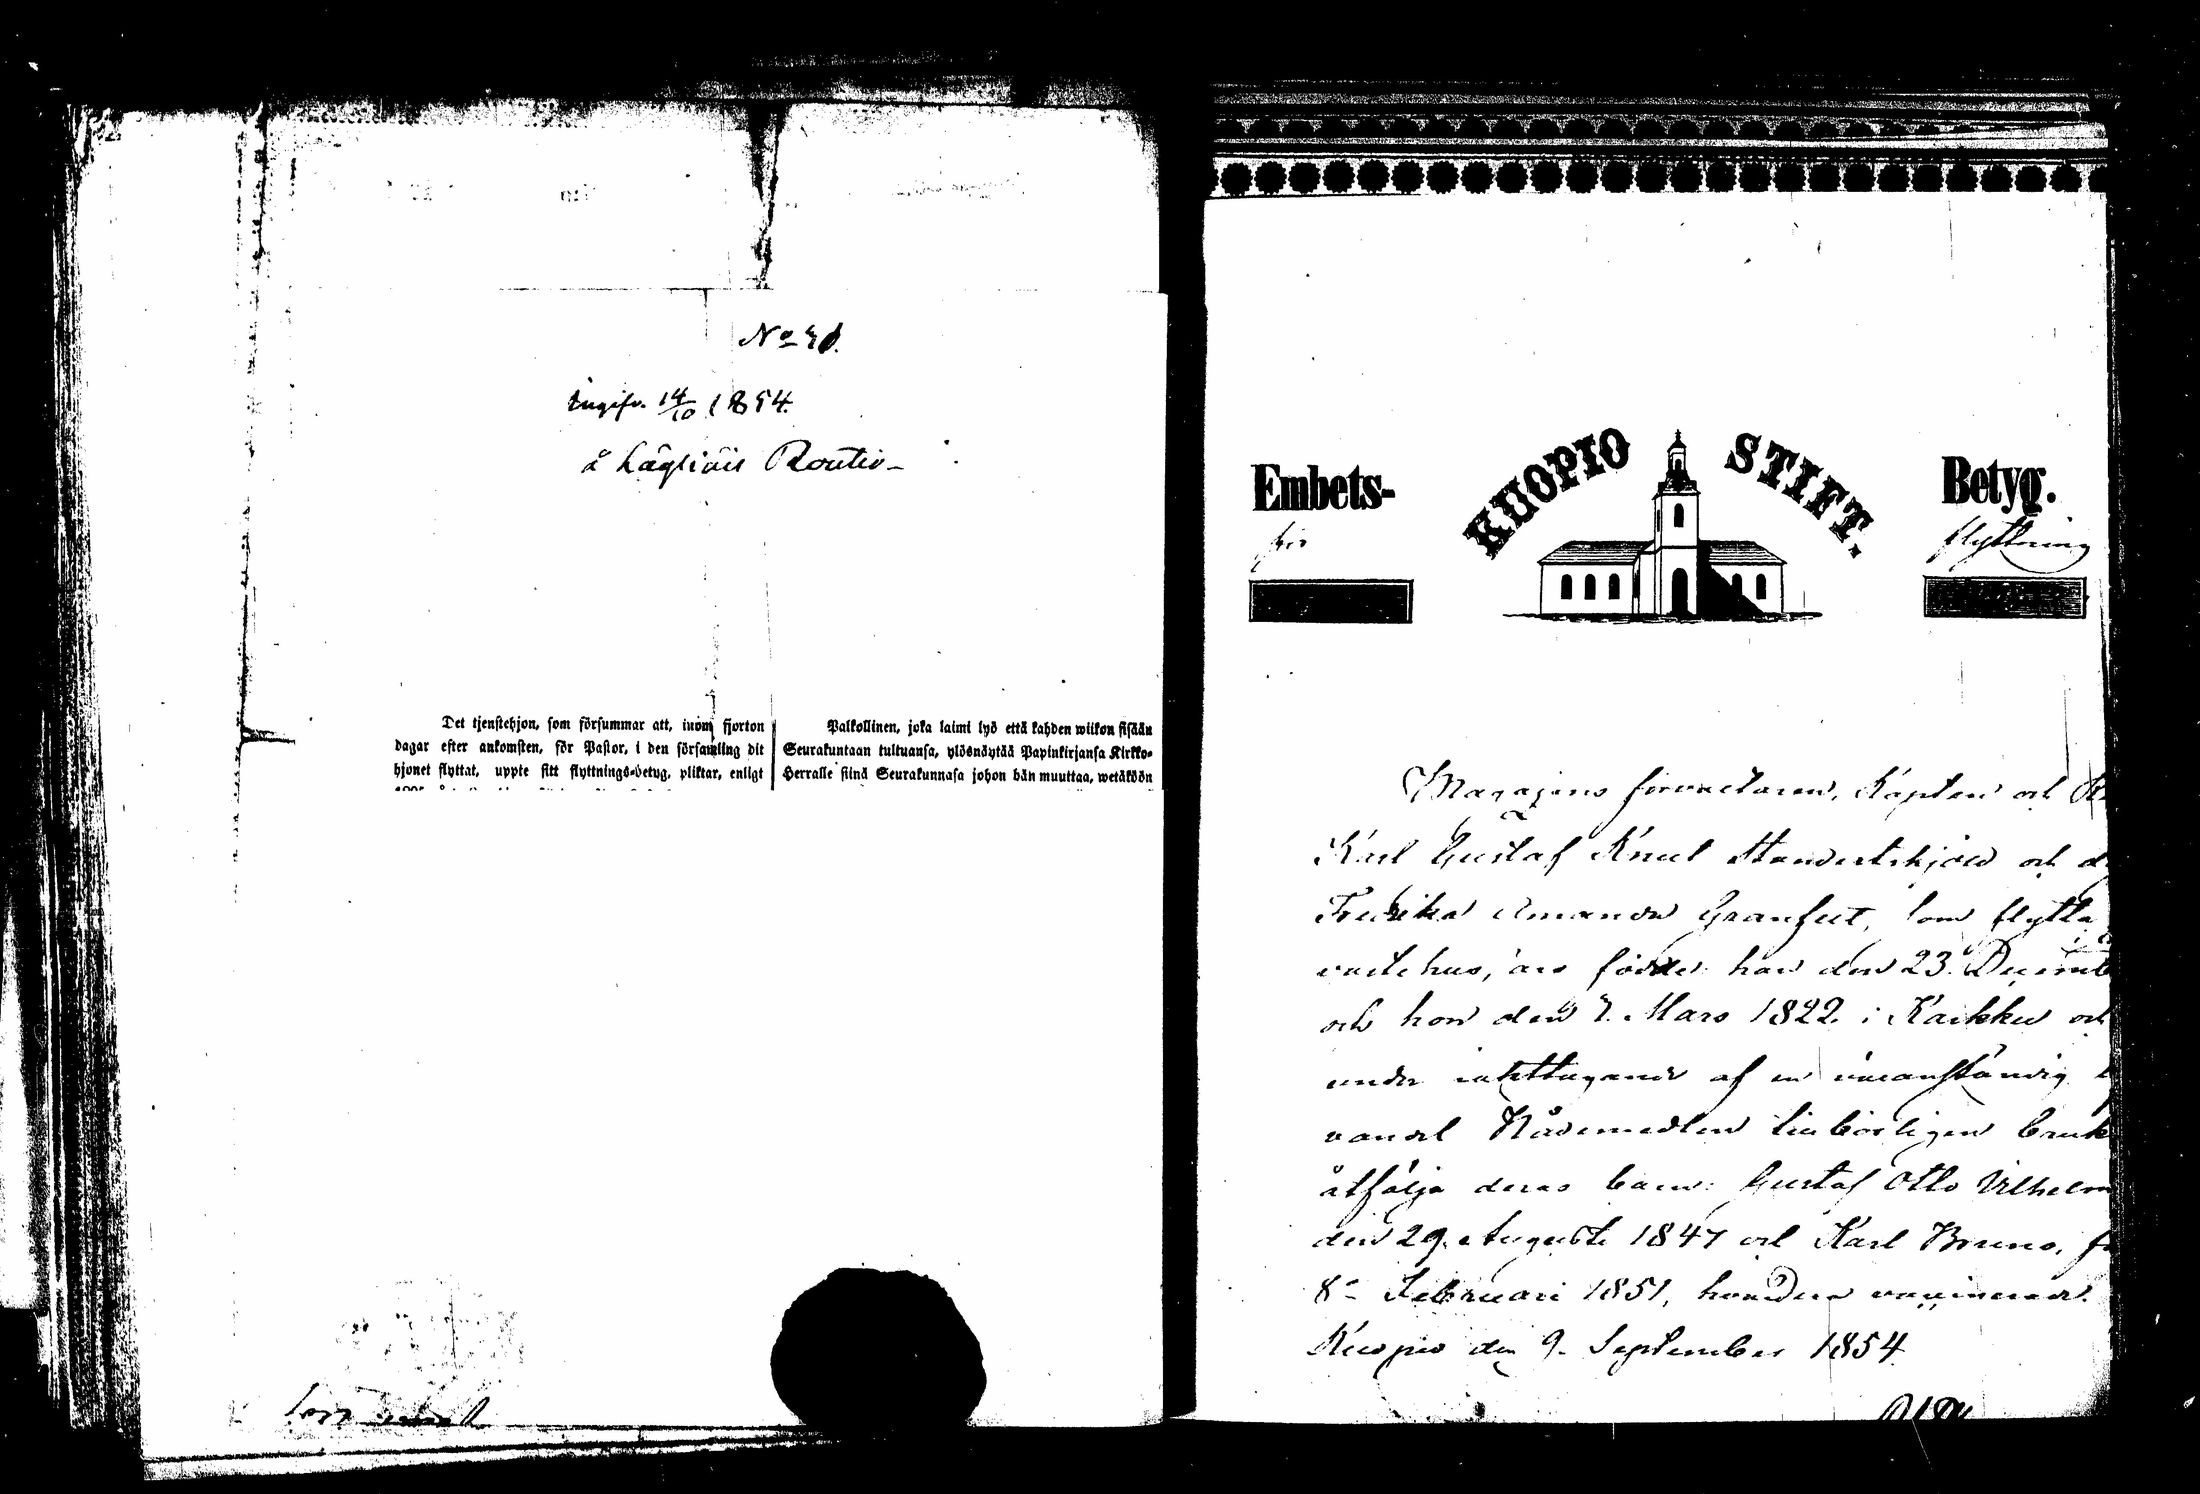 No 41.
Ingifv. 14/10 1854.
å
Det tjenstehjon, som försummar att, inom fjorton
dagar efter ankomsten, för Pastor, i den församling dit
hjonet flyttat, uppte sitt flyttnings-betyg, pliktar, enligt
Palkollinen, joka laimi lyö että kahden wiikon sisään
Seurakuntaan tultuansa, ylösnäytää Papinkirjansa Kirkko-
Herralle siinä Seurakunnasa johon hän muuttaa, wetäköön
KUOPIO STIFT.
Embets- Betyg.
för flyttning
Magazins förvaltaren, Kapten och
Karl Gustaf Knut Standertskjöld och
Fredrika Amanda Granfelt, som flytta
vastehus, äro födde: han den 23. Decemb
och hon den 7. Mars 1822. i Karkku och
under iakttagande af en väranständig
vandel Nådemedlen tillbörligen bruk
åtfölja deras barn: Gustaf Otto Vilhelm
den 29. Augusti 1847 och Karl Bruno, fö
8 Februari 1851, hvardera vaccinerade.
Kuopio den 9. September 1854